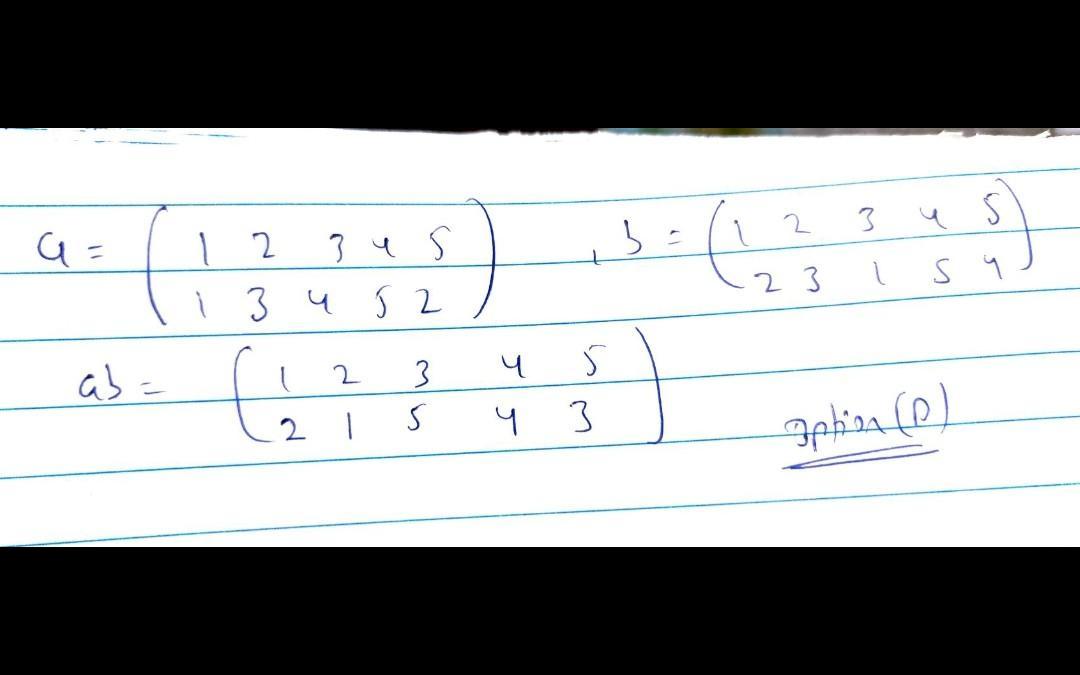 a = ( 1 2 3 4 5 ) , b = ( 1 2 3 4 5 )
( 1 3 4 5 2 ) ( 2 3 1 5 4 )
ab = ( 1 2 3 4 5 )
( 2 1 5 4 3 ) option (D)